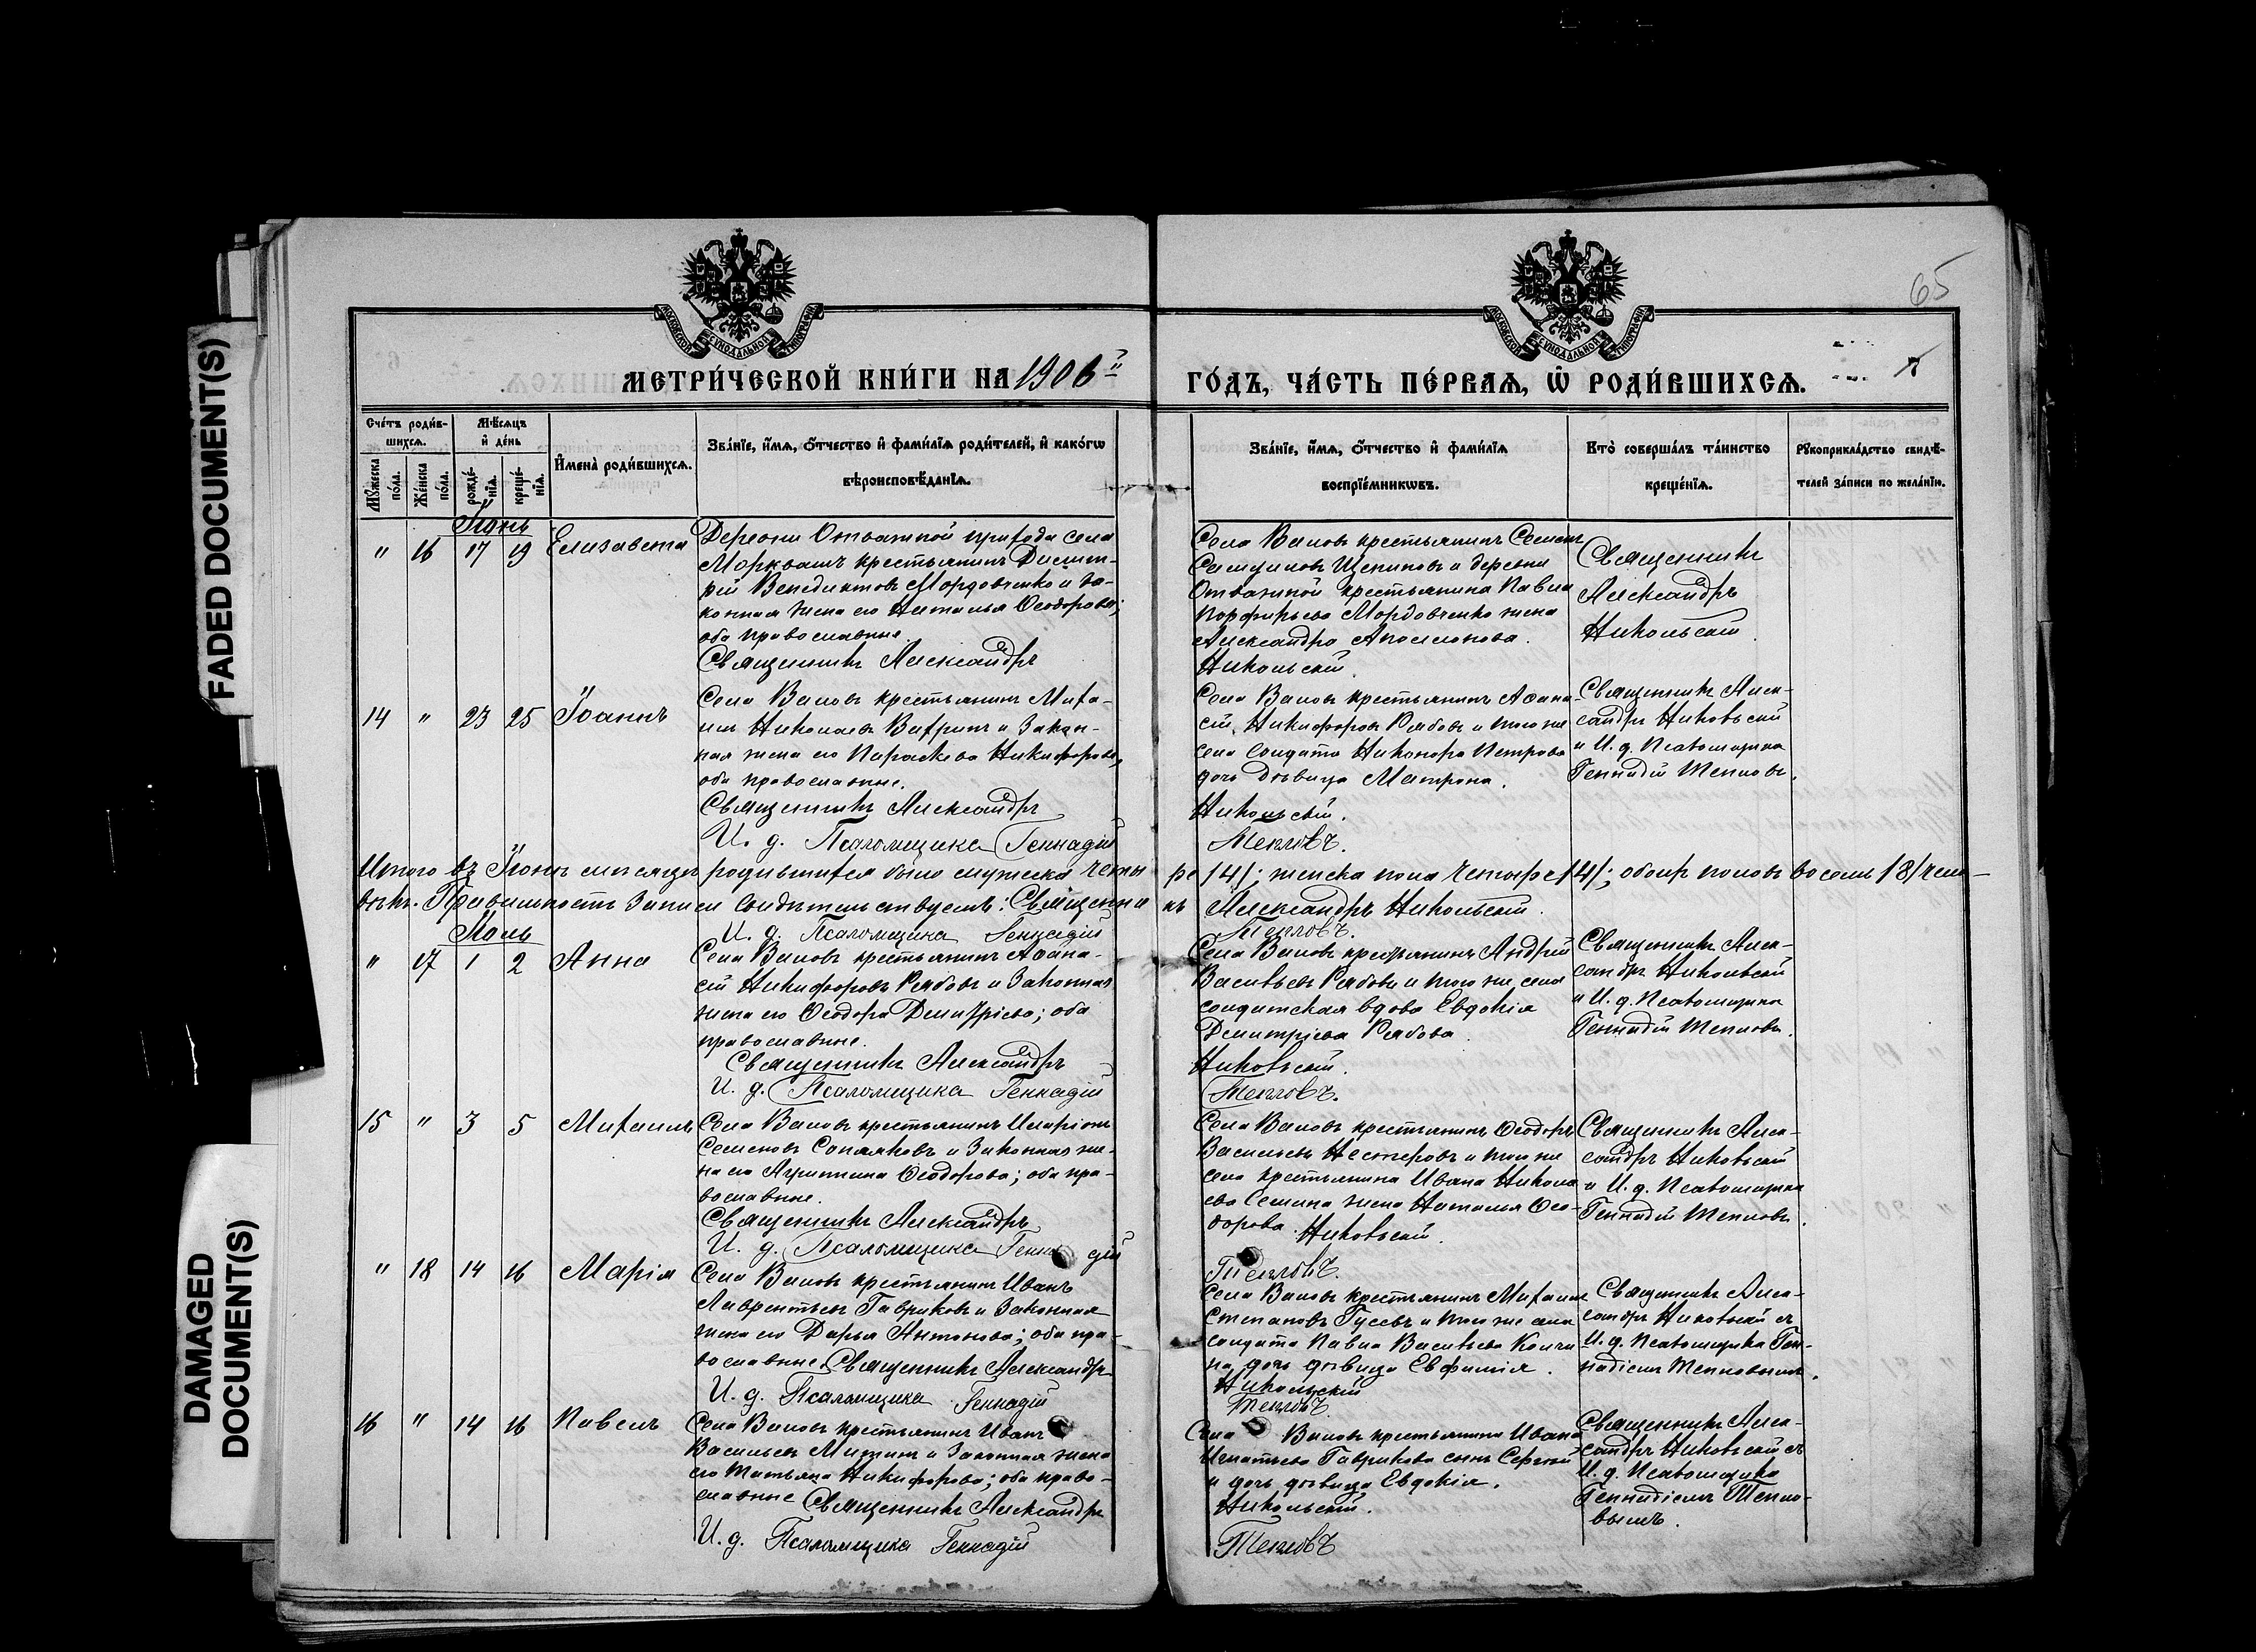 FADED DOCUMENT(S)
DAMAGED
DOCUMENT(S)
65
7
МОСКОВСКОЙ СѴНОДАЛЬНОЙ ТИПОГРАФІИ
МОСКОВСКОЙ СѴНОДАЛЬНОЙ ТИПОГРАФІИ
МЕТРИ́ЧЕСКОЙ КНИ́ГИ НА 1906й ГО́ДЪ, ЧА́СТЬ ПЕ́РВАѦ, Ѡ҆ РОДИ́ВШИХСѦ.
Сче́тъ роди́в-
шихсѧ.
Мꙋ́жеска
по́ла.
Же́нска
по́ла.
Мѣ́сѧцъ
и҆ де́нь
рожде́-
нїѧ.
креще́-
нїѧ.
И҆мена̀ роди́вшихсѧ.
Зва́нїе, и҆́мѧ, ѻ҆́тчество и҆ фами́лїѧ роди́телей, и҆ како́гѡ
вѣроисповѣ́данїѧ.
Зва́нїе, и҆́мѧ, ѻ҆́тчество и҆ фами́лїѧ
воспрїе́мникѡвъ.
Кто̀ соверша́лъ та́инство
креще́нїѧ.
Рꙋкоприкла́дство свидѣ́-
телей за́писи по жела́нїю.
Іюнь
" 16 17 19 Елизавета
Деревни Отважной прихода села
Моркваши крестьянинъ Димит-
рій Венедиктовъ Мордовченко и за-
конная жена его Наталья Ѳеодорова;
оба православные.
Священникъ Александръ
Села Валовъ крестьянинъ Семенъ
Щепиновъ и деревни
Отважной крестьянина Павла
Порфирьева Мордовченко жена
Александра
Никольскій.
Священникъ
Александръ
Никольскій.
14 " 23 25 Іоаннъ
Села Валовъ крестьянинъ Миха-
илъ Николаевъ Вихринъ и Закон-
ная жена его Параскева Никифорова,
оба православные.
Священникъ Александръ
И. д. Псаломщика Геннадій
Села Валовъ крестьянинъ Аѳана-
сій Никифоровъ Рябовъ и того же
села солдата Никонора Петрова
дочь дѣвица Матрона.
Никольскій.
Тепловъ.
Священникъ Алек-
сандръ Никольскій
и И. д. Псаломщика
Геннадій Тепловъ.
Итого въ Іюнѣ мѣсяцѣ родившихся было мужеска четыре /4/; женска пола четыре /4/; обоихъ половъ восемь /8/ чело-
вѣкъ. Правильность записи свидѣтельствуемъ: Священникъ Александръ Никольскій.
И. д. Псаломщика Геннадій Тепловъ.
Іюль
" 17 1 2 Анна
Села Валовъ крестьянинъ Аѳана-
сій Никифоровъ Рябовъ и Законная
жена его Ѳеодора Димитріева; оба
православные.
Священникъ Александръ
И. д. Псаломщика Геннадій
Села Валовъ крестьянинъ Андрей
Васильевъ Рябовъ и того же села
солдатская вдова Евдокія
Димитріева Рябова.
Никольскій.
Тепловъ.
Священникъ Алек-
сандръ Никольскій
и И. д. Псаломщика
Геннадій Тепловъ.
15 " 3 5 Михаилъ
Села Валовъ крестьянинъ Иларіонъ
Семеновъ и Законная же-
на его Агриппина Ѳеодорова; оба пра-
вославные.
Священникъ Александръ
И. д. Псаломщика Геннадій
Села Валовъ крестьянинъ Ѳеодоръ
Васильевъ Нестеровъ и того же
села крестьянина Ивана Никола-
ева Семина жена Наталья Ѳео-
дорова. Никольскій.
Тепловъ.
Священникъ Алек-
сандръ Никольскій
и И. д. Псаломщика
Геннадій Тепловъ.
" 18 14 16 Марія
Села Валовъ крестьянинъ Иванъ
Лаврентьевъ Гавриковъ и Законная
жена его Дарья Антонова; оба пра-
вославные. Священникъ Александръ
И. д. Псаломщика Геннадій
Села Валовъ крестьянинъ Михаилъ
Степановъ Гусевъ и того же села
солдата Павла Васильева
дочь дѣвица Евфимія.
Никольскій
Тепловъ.
Священникъ Алек-
сандръ Никольскій съ
И. д. Псаломщика Ген-
надіемъ Тепловымъ.
16 " 14 16 Павелъ
Села Валовъ крестьянинъ Иванъ
Васильевъ и Законная жена
его Татьяна Никифорова; оба право-
славные Священникъ Александръ
И. д. Псаломщика Геннадій
Села Валовъ крестьянина Ивана
Игнатьева Гаврикова сынъ Сергей
и дочь дѣвица Евдокія.
Никольскій.
Тепловъ
Священникъ Алек-
сандръ Никольскій съ
И. д. Псаломщика
Геннадіемъ Тепло-
вымъ.